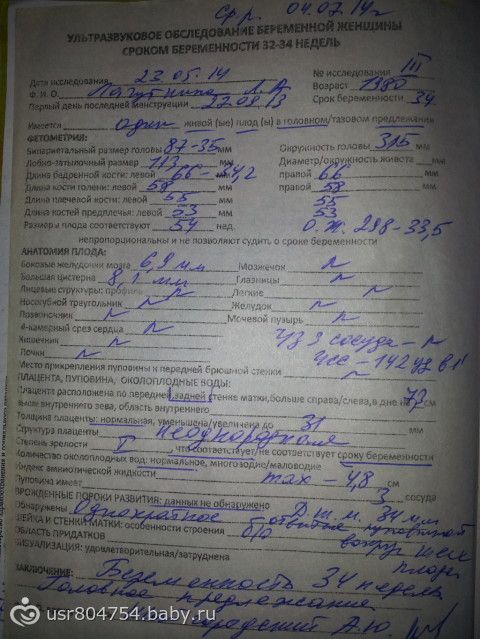 Ср р. 04.07.14г
УЛЬТРАЗВУКОВОЕ ОБСЛЕДОВАНИЕ БЕРЕМЕННОЙ ЖЕНЩИНЫ
СРОКОМ БЕРЕМЕННОСТИ 32-34 НЕДЕЛЬ
Дата исследования 23.05.14 № исследования III
Ф. И. О. Л. А Возраст 1980
Первый день последней менструации 27.08.13 Срок беременности 34
Имеется один живой (ые) плод (ы) в головном/тазовом предлежании
ФЕТОМЕТРИЯ:
Бипариетальный размер головы 87-35 мм Окружность головы 315 мм
Лобно-затылочный размер 113 мм Диаметр/окружность живота мм
Длина бедренной кости: левой 66 - 34,2 правой 66 мм
Длина кости голени: левой 58 мм правой 58 мм
Длина плечевой кости: левой 55 мм 55 мм
Длина костей предплечья: левой 53 мм 53 мм
Размеры плода соответствуют 34 нед. О.Ж. 298-33,5
непропорциональны и не позволяют судить о сроке беременности
АНАТОМИЯ ПЛОДА:
Боковые желудочки мозга 6,9 мм Мозжечок N
Большая цистерна 8,1 мм Глазницы N
Лицевые структуры: профиль N Легкие N
Носогубной треугольник N Желудок N
Позвоночник N Мочевой пузырь N
4-камерный срез сердца N ЧЗ 3 сосуда - N
Кишечник N ЧСС - 142 уд в 1'
Почки N
Место прикрепления пуповины к передней брюшной стенке N
ПЛАЦЕНТА, ПУПОВИНА, ОКОЛОПЛОДНЫЕ ВОДЫ:
Плацента расположена по передней, задней стенке матки, больше справа/слева, в дне на 73 см
выше внутреннего зева, область внутреннего
Толщина плаценты: нормальная, уменьшена/увеличена до 31 мм
Структура плаценты неоднородная
Степень зрелости I, что соответствует/не соответствует сроку беременности
Количество околоплодных вод: нормальное, многоводие/маловодие
Индекс амниотической жидкости max - 4,8 см
Пуповина имеет 3 сосуда
ВРОЖДЕННЫЕ ПОРОКИ РАЗВИТИЯ: данных не обнаружено
Обнаружены Однократное обвитие пуповиной Д.ш.м. 34 мм
ШЕЙКА И СТЕНКИ МАТКИ: особенности строения б/о вокруг шеи
ОБЛАСТЬ ПРИДАТКОВ плода
ВИЗУАЛИЗАЦИЯ: удовлетворительная/затруднена
ЗАКЛЮЧЕНИЕ: Беременность 34 недель
Головное предлежание
А.Ю.
usr804754.baby.ru